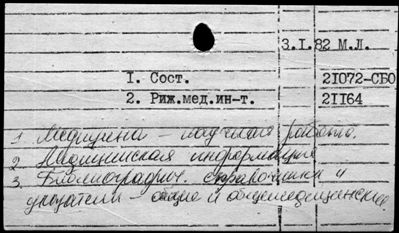 3.I.82 М.Л.
I. Сост. 21072-СБО
2. Риж.мед.ин-т. 21164
1 Медицина — научная работа.
2 Медицинская информация
3. Библиографич. справочники и
указатели — общие и общемедицинские.